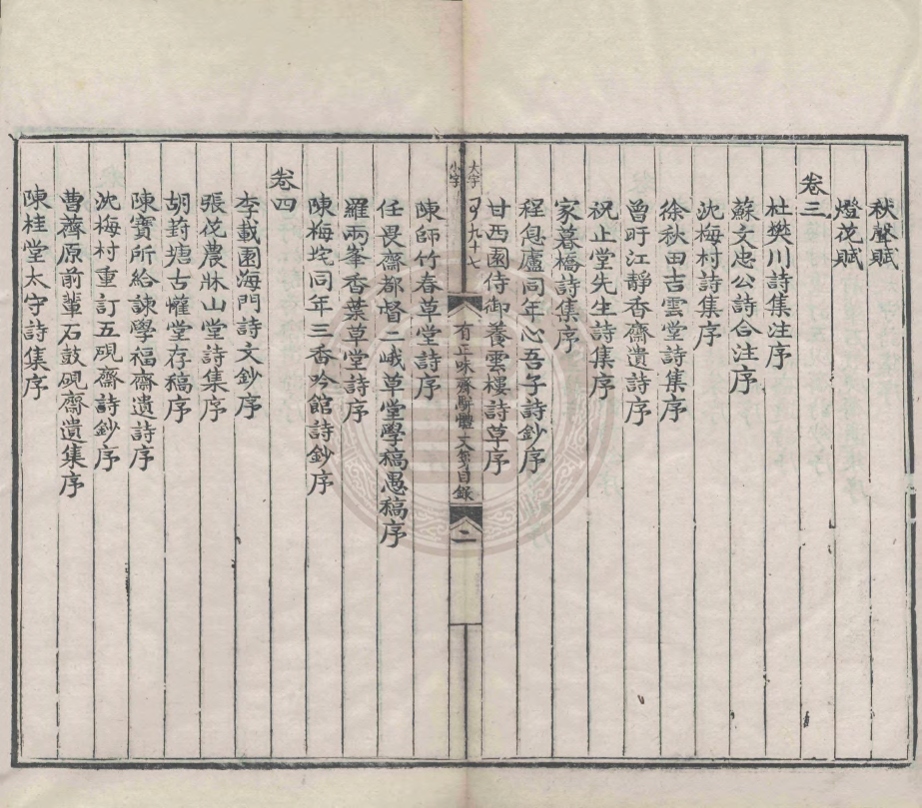 秋聲賦
燈花賦
卷三
杜樊川詩集注序
蘇文忠公詩合注序
沈梅村詩集序
徐秋田吉雲堂詩集序
曾旴江靜香齋遺詩序
祝止堂先生詩集序
家暮橋詩集序
程息廬同年心吾子詩鈔序
甘西園侍御養雲樓詩草序
大字
小字
九十七
有正味齋駢體文箋目錄
二
陳師竹春草堂詩序
任畏齋都督二峨草堂學稿愚稿序
羅兩峯香葉草堂詩序
陳梅垞同年三香吟館詩鈔序
卷四
李載園海門詩文鈔序
張花農牀山堂詩集序
胡葑塘古懽堂存稿序
陳寶所給諫學福齋遺詩序
沈梅村重訂五硯齋詩鈔序
曹薺原前輩石鼓硯齋遺集序
陳桂堂太守詩集序